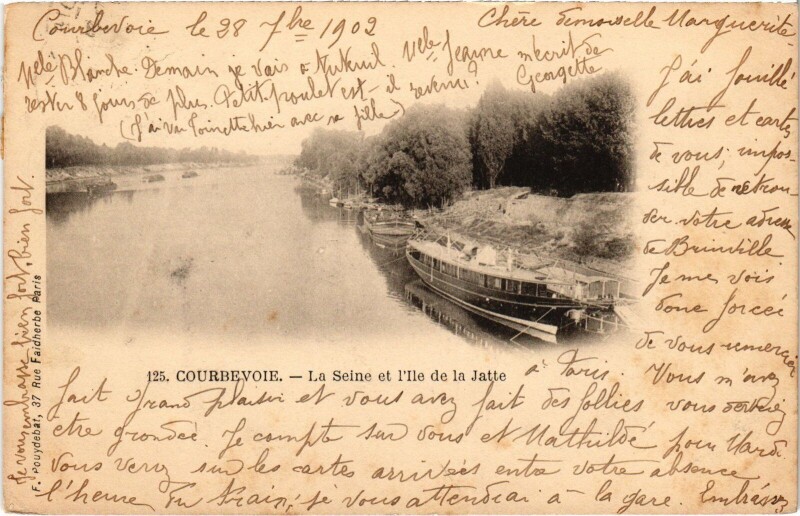 Courbevoie le 28 7bre 1902
Chère demoiselle Marguerite
J'ai fouillé
lettres et cartes
de vous; impos-
sible de retrou-
ver votre adresse
de Brinville.
Je me vois
donc forcée
de vous remercier
à Paris. Vous m'avez
fait grand plaisir et vous avez fait des follies vous devriez
être grondée. Je compte sur vous et Mathilde pour Mardi
vous verrez sur les cartes arrivées entre votre absence
l'heure du train; je vous attendrai à la gare. Embrassez
Melle Blanche. Demain je vais à Auteuil. Melle Jeanne m'écrit de
rester 8 jours de plus. Petit-poulet est-il revenu? Georgette
(J'ai vu Toinette hier avec sa fille)
Je vous embrasse bien fort, bien fort.
125. COURBEVOIE. — La Seine et l'Ile de la Jatte
F. Pouydebat, 37 Rue Faidherbe Paris